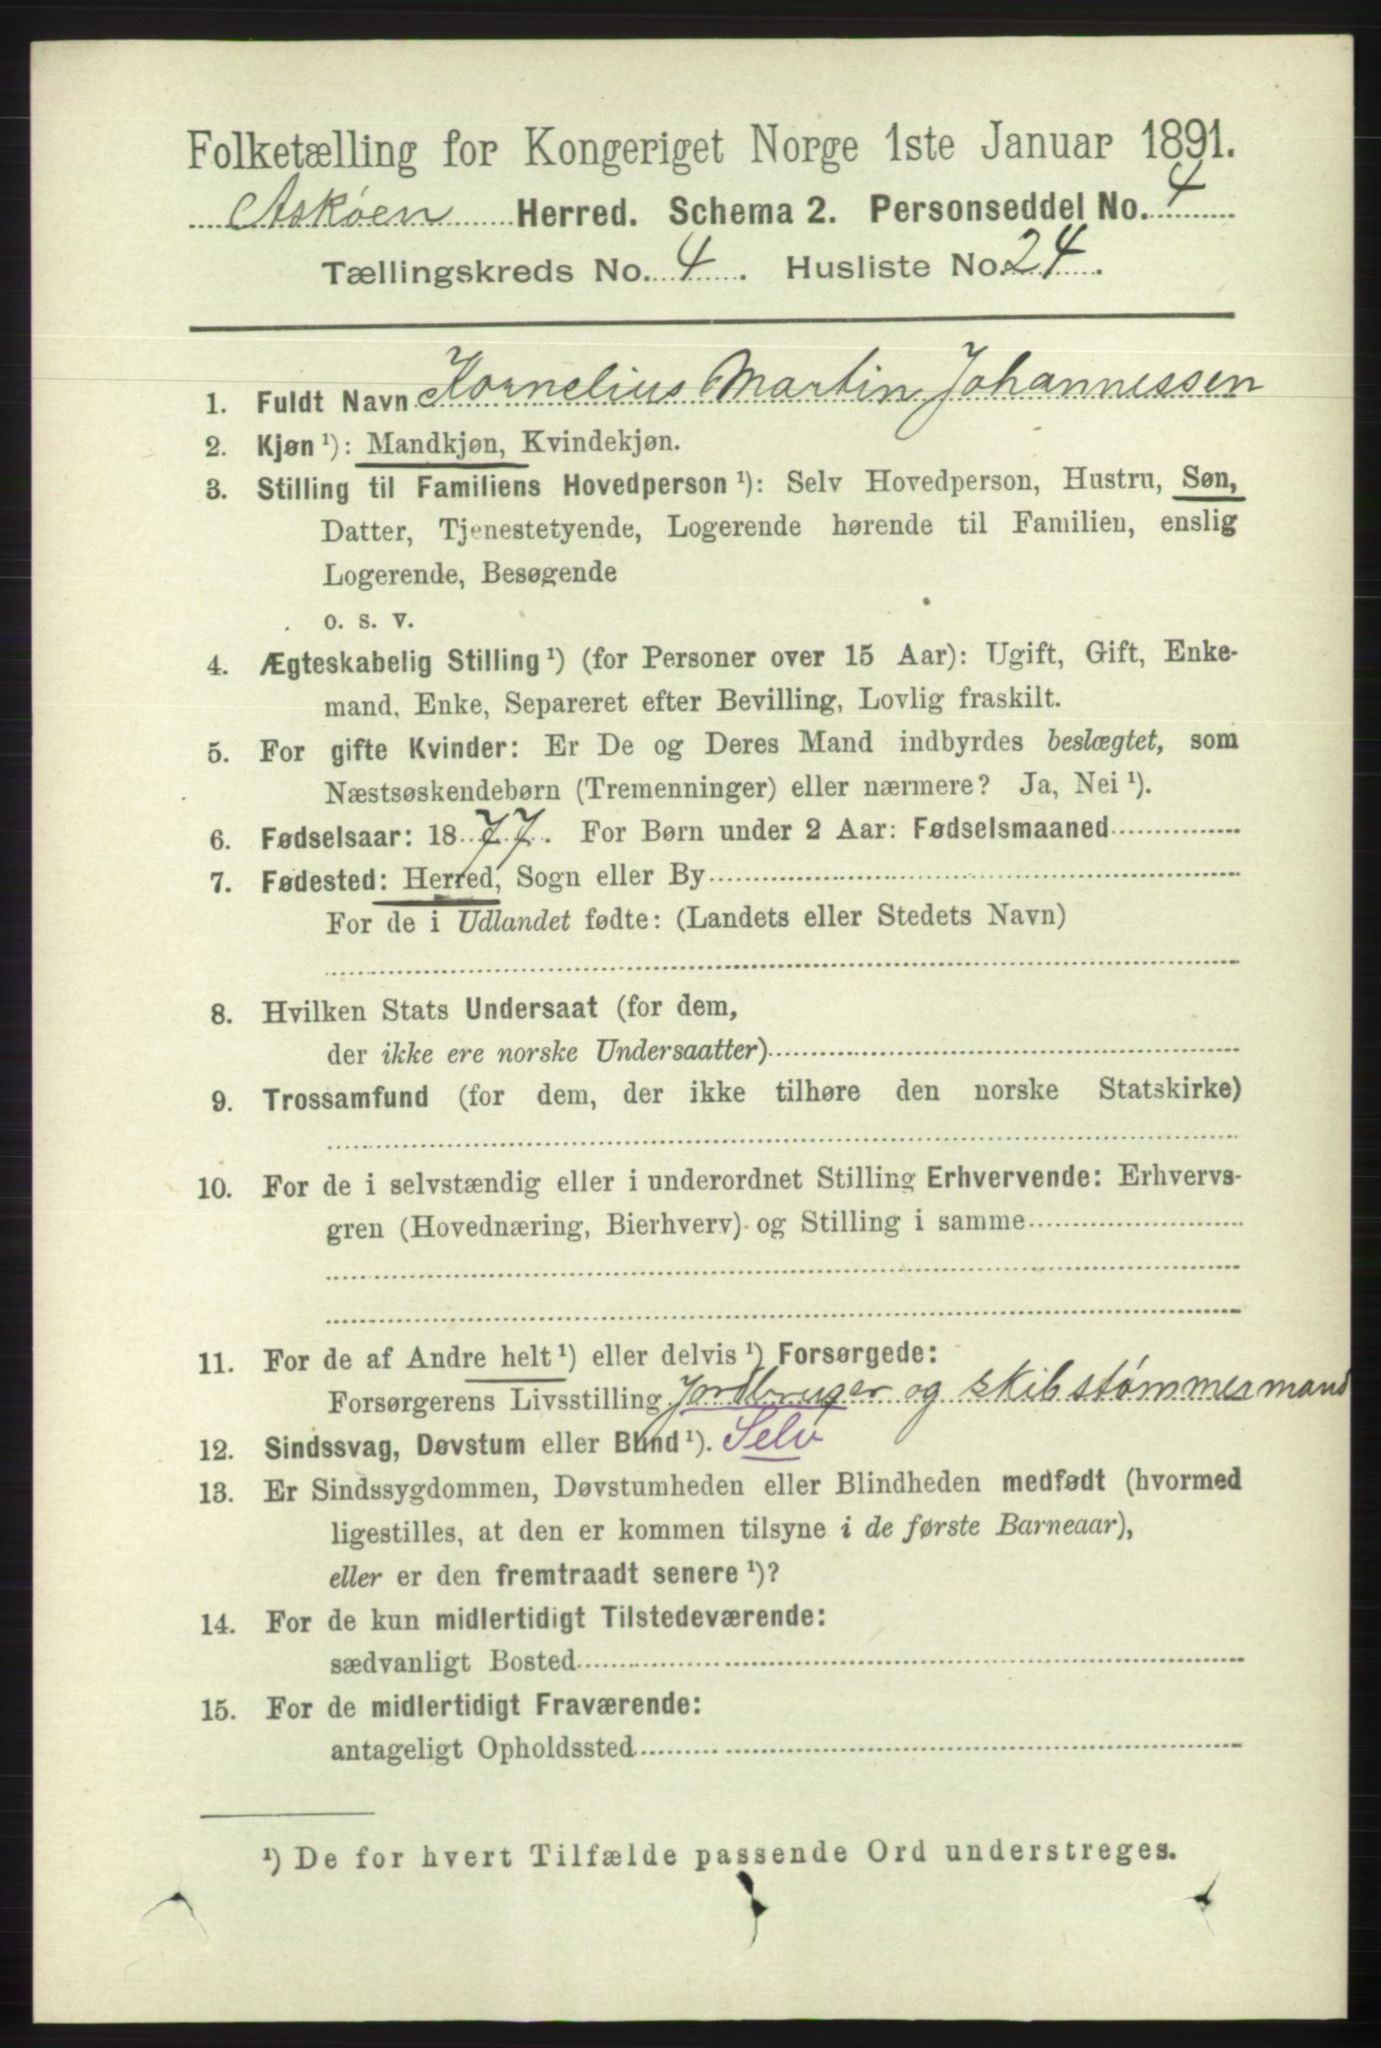 Folketælling for Kongeriget Norge 1ste Januar 1891.
Askøen Herred. Schema 2. Personseddel No. 4
Tællingskreds No. 4. Husliste No. 24.
1. Fuldt Navn Kornelius Martin Johannessen
2. Kjøn ¹): Mandkjøn, Kvindekjøn.
3. Stilling til Familiens Hovedperson ¹): Selv Hovedperson, Hustru, Søn,
Datter, Tjenestetyende, Logerende hørende til Familien, enslig
Logerende, Besøgende
o. s. v.
4. Ægteskabelig Stilling ¹) (for Personer over 15 Aar): Ugift, Gift, Enke-
mand, Enke, Separeret efter Bevilling, Lovlig fraskilt.
5. For gifte Kvinder: Er De og Deres Mand indbyrdes beslægtet, som
Næstsøskendebørn (Tremenninger) eller nærmere? Ja, Nei ¹).
6. Fødselsaar: 1877. For Børn under 2 Aar: Fødselsmaaned
7. Fødested: Herred, Sogn eller By
For de i Udlandet fødte: (Landets eller Stedets Navn)
8. Hvilken Stats Undersaat (for dem,
der ikke ere norske Undersaatter)
9. Trossamfund (for dem, der ikke tilhøre den norske Statskirke)
10. For de i selvstændig eller i underordnet Stilling Erhvervende: Erhvervs-
gren (Hovednæring, Bierhverv) og Stilling i samme
11. For de af Andre helt ¹) eller delvis ¹) Forsørgede:
Forsørgerens Livsstilling Jordbruger og skibstømmermand
12. Sindssvag, Døvstum eller Blind ¹). Selv
13. Er Sindssygdommen, Døvstumheden eller Blindheden medfødt (hvormed
ligestilles, at den er kommen tilsyne i de første Barneaar),
eller er den fremtraadt senere ¹)?
14. For de kun midlertidigt Tilstedeværende:
sædvanligt Bosted
15. For de midlertidigt Fraværende:
antageligt Opholdssted
¹) De for hvert Tilfælde passende Ord understreges.